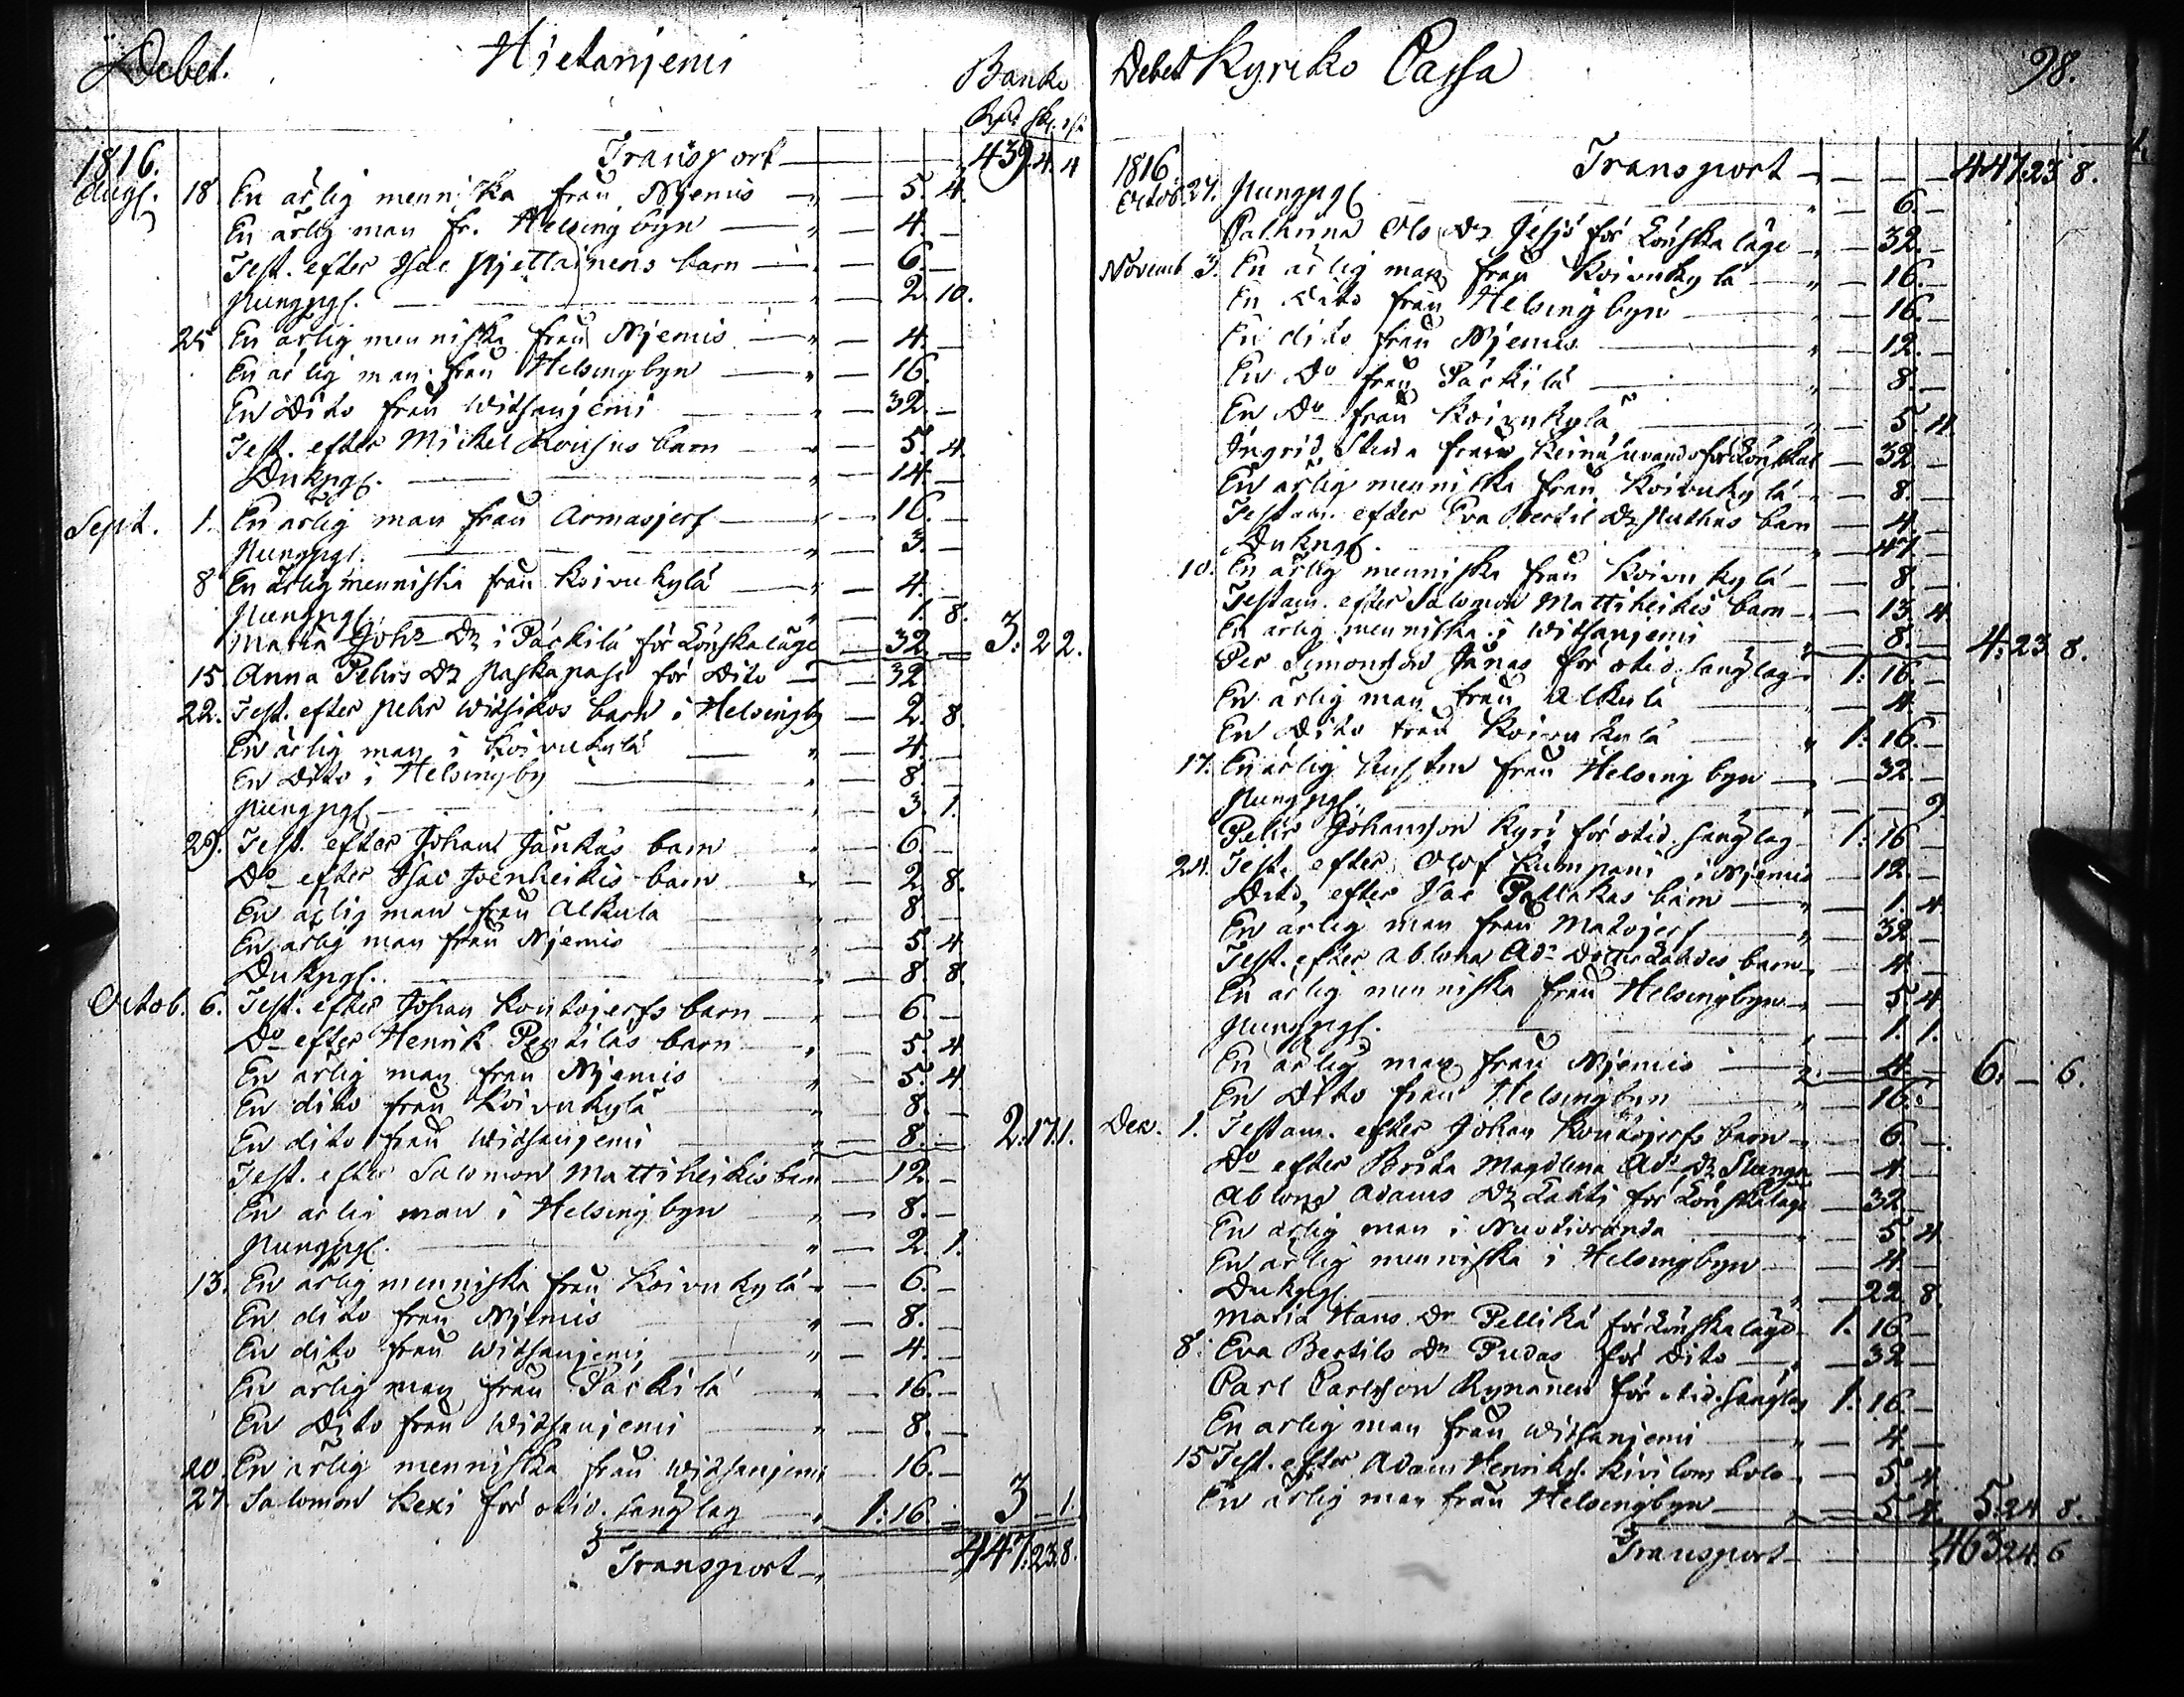 Debet. Hietaniemi Banko
Rd. sk. rst
1816. Transport 439. 4. 4
Aug. 18 En ärlig menniska från Niemis 5. 4.
En ärlig man fr. Helsingbyn 4.
Test. efter Isac Pjettainens barn 6
Pungpg. 2. 10.
25 En ärlig menniska från Niemis 4.
En ärlig man från Helsingbyn 16.
En Dito från Witsanjemi 32.
Test. efter Mickel barn 5. 4
Dukpg. 14
Sept. 1. En ärlig man från Armasjerf 16.
Pungpg. 3.
8 En ärlig menniska från Koivukylä 4.
Pungpg. 1. 8.
Maria Joh: Dr i Päckilä för Lönskaläge 32 3: 22.
15. Anna Pehrs Dr för Dito 32
22. Test. efter Pehr Witsikos barn i Helsingby 2. 8.
En ärlig man i Koivukylä 4.
En Dito i Helsingby 8
Pungpg 3. 1.
29. Test. efter Johan Jänkäs barn 6.
Do efter Isac Joenheikis barn 2. 8.
En ärlig man från Alkula 8
En ärlig man från Niemis 5. 4
Dukpg. 8. 8.
Octob. 6. Test. efter Johan Kontojerfs barn 6.
Do efter Henrik Pentilas barn 5. 4
En ärlig man från Niemis 5. 4
En dito från Koivukylä 8.
En dito från Witsanjemi 8. 2. 17. 1.
Test. efter Salomon Mattiheikis barn 12.
En ärlig man i Helsingbyn 8.
Pungpg. 2. 1.
13. En ärlig menniska från Koivukylä 6.
En dito från Niemis 8.
En dito från Witsanjemi 4.
En ärlig man från Päckilä 16.
En Dito från Witsanjemi 8.
20. En ärlig menniska från Witsanjemi 16.
27. Salomon Kexi för otid. sänglag 1: 16. 3 - 1.
Transport 447. 23. 8.
Debet Kyrko Cassa 98.
1816. Transport 447. 23 8.
Octob. 27. Pungpg 6.
Cathrina Ols Dr för Lönskaläge 32.
Novemb. 3. En ärlig man från Koivukylä 16.
En Dito från Helsingbyn 16.
En dito från Niemis 12.
En Do från Päckilä 8.
En Do från Koivukylä 5. 4.
Ingrid Stina från 32
En ärlig menniska från Koivukylä 8.
Testam. efter Eva Bertil Dr barn 4.
Dukpg. 47
10. En ärlig menniska från Koivukylä 8.
Testam. efter Salomon Mattiheikis barn 13. 4
En ärlig menniska i Witsanjemi 8. 4: 23. 8.
Per Simonsson för otid. sänglag 1: 16.
En ärlig man från Alkula 4.
En Dito från Koivukylä 1: 16.
17. En ärlig från Helsingbyn 32
Pungpg. 9.
Pehr Johansson Kyrö för otid. sänglag 1: 16
24. Test. efter Olof Kumpani i Niemis 12.
Dito, efter Isac barn 1. 4
En ärlig man från Matojerf 32
Test. efter Ablona Ad: barn 4
En ärlig menniska från Helsingbyn 5. 4
Pungpg. 1. 1.
En ärlig man från Niemis 4 6. - 6.
En Dito från Helsingbyn 16.
Dec. 1. Testam. efter Johan Kontojerfs barn 6.
Do efter Brita Magdlena Ad: Dr 4
Ablona Adams Dr Lahti för Lönskaläge 32
En ärlig man i Nuotioranda 5. 4
En ärlig menniska i Helsingbyn 4.
Dukpg. 22. 8.
Maria Hans Dr Pellikä för Lönskaläge 1. 16
8. Eva Bertils Dr Pudas för Dito 32
Carl Carlsson Rynänen för otid. sänglag 1: 16.
En ärlig man från Witsanjemi 4
15 Test. efter Adam Henriks. 5. 4
En ärlig man från Helsingbyn 5. 4. 5: 24 8.
Transport 463 24. 6